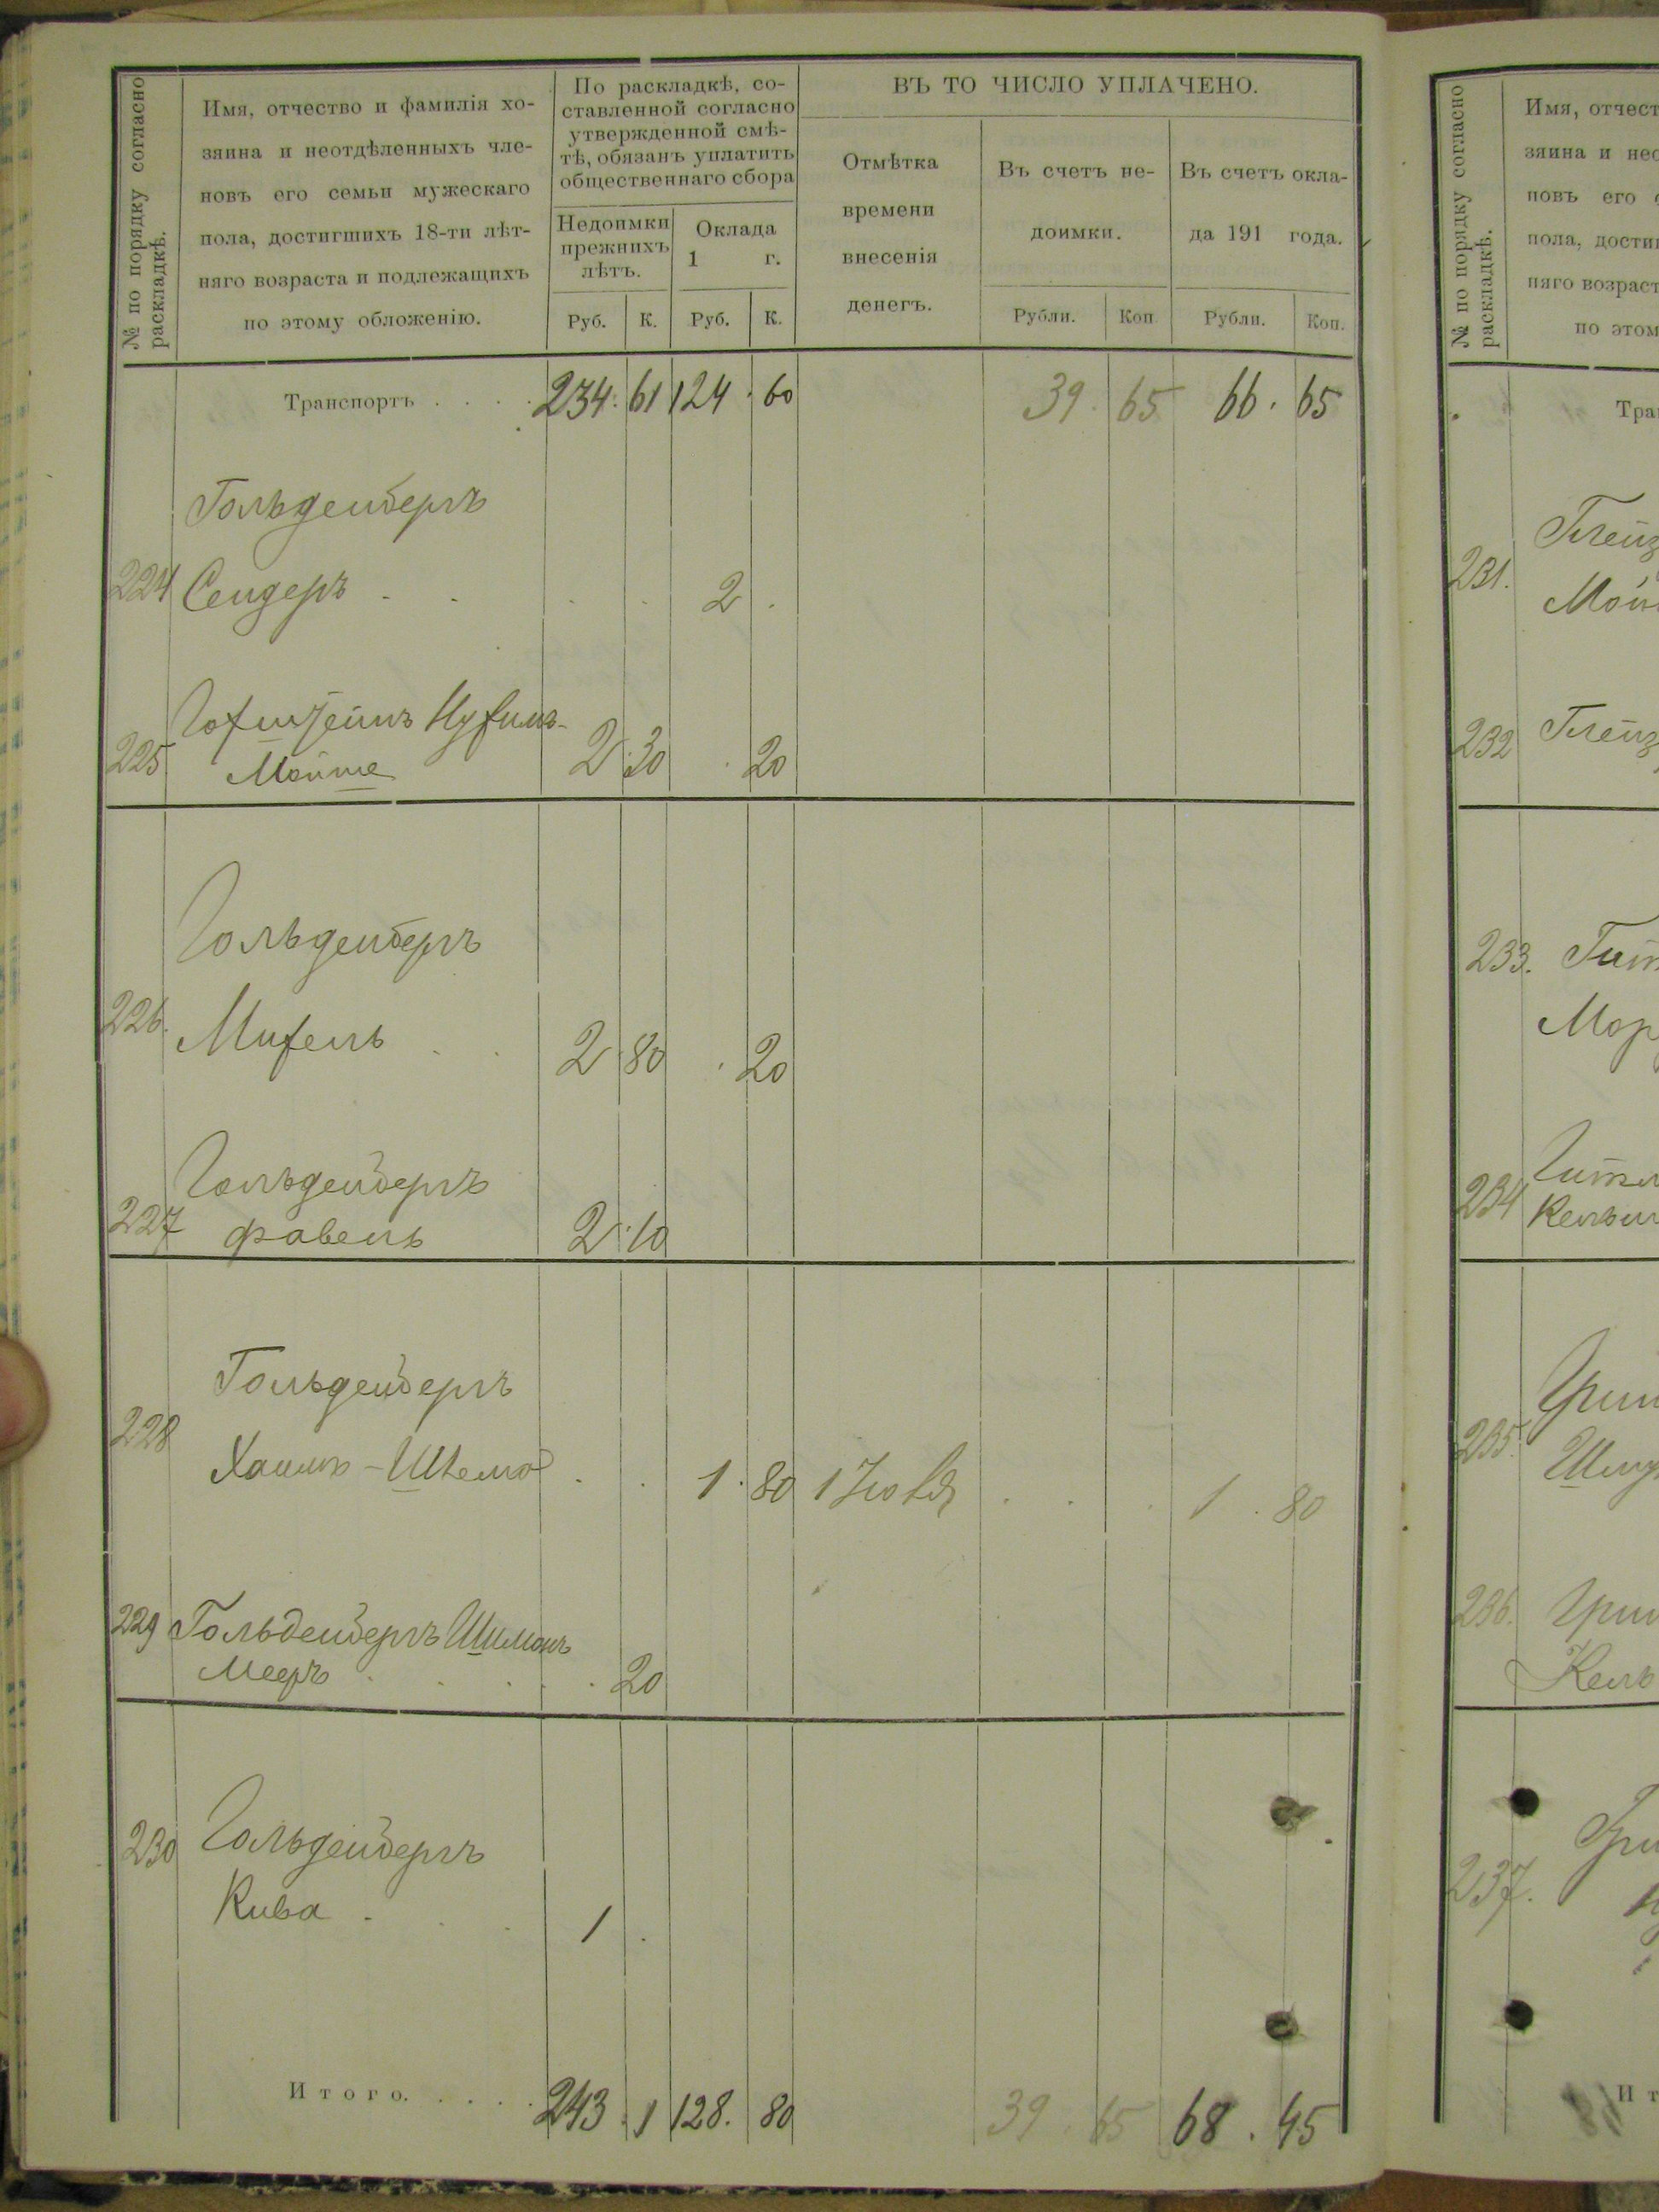 № по порядку согласно
раскладкѣ.
Имя, отчество и фамилія хо-
зяина и неотдѣленныхъ чле-
новъ его семьи мужескаго
пола, достигшихъ 18-ти лѣт-
няго возраста и подлежащихъ
по этому обложенію.
По раскладкѣ, со-
ставленной согласно
утвержденной смѣ-
тѣ, обязанъ уплатить
общественнаго сбора
Недоимки
прежнихъ
лѣтъ.
Оклада
1 г.
Руб. К. Руб. К.
ВЪ ТО ЧИСЛО УПЛАЧЕНО.
Отмѣтка
времени
внесенія
денегъ.
Въ счетъ не-
доимки.
Въ счетъ окла-
да 191 года.
Рубли. Коп Рубли. Коп.
Транспортъ . . . . 234. 61 124. 60 39. 65 66. 65
Гольденбергъ
224 Сендеръ . . . . 2 .
Гофштейнъ Нухимъ-
225 Мойше 2 30 . 20
Гольденбергъ
226. Михель . . 2 80 . 20
Гольденбергъ
227 Фавель 2 10
Гольденбергъ
228
Хаимъ-Шлема . . 1. 80 1 Іюля . . . 1. 80
229 Гольденбергъ Шимонъ
Мееръ . . . . . 20
230 Гольденбергъ
Кива . . . 1 .
Итого. . . . . 243. 1 128. 80 39. 65 68. 45
№ по порядку согласно
раскладкѣ.
Имя, отчест
зяина и нео
новъ его
пола, дости
няго возраст
по этом
Тран
231.
Мой
232
233.
Мор
234
235.
236.
237.
Ит